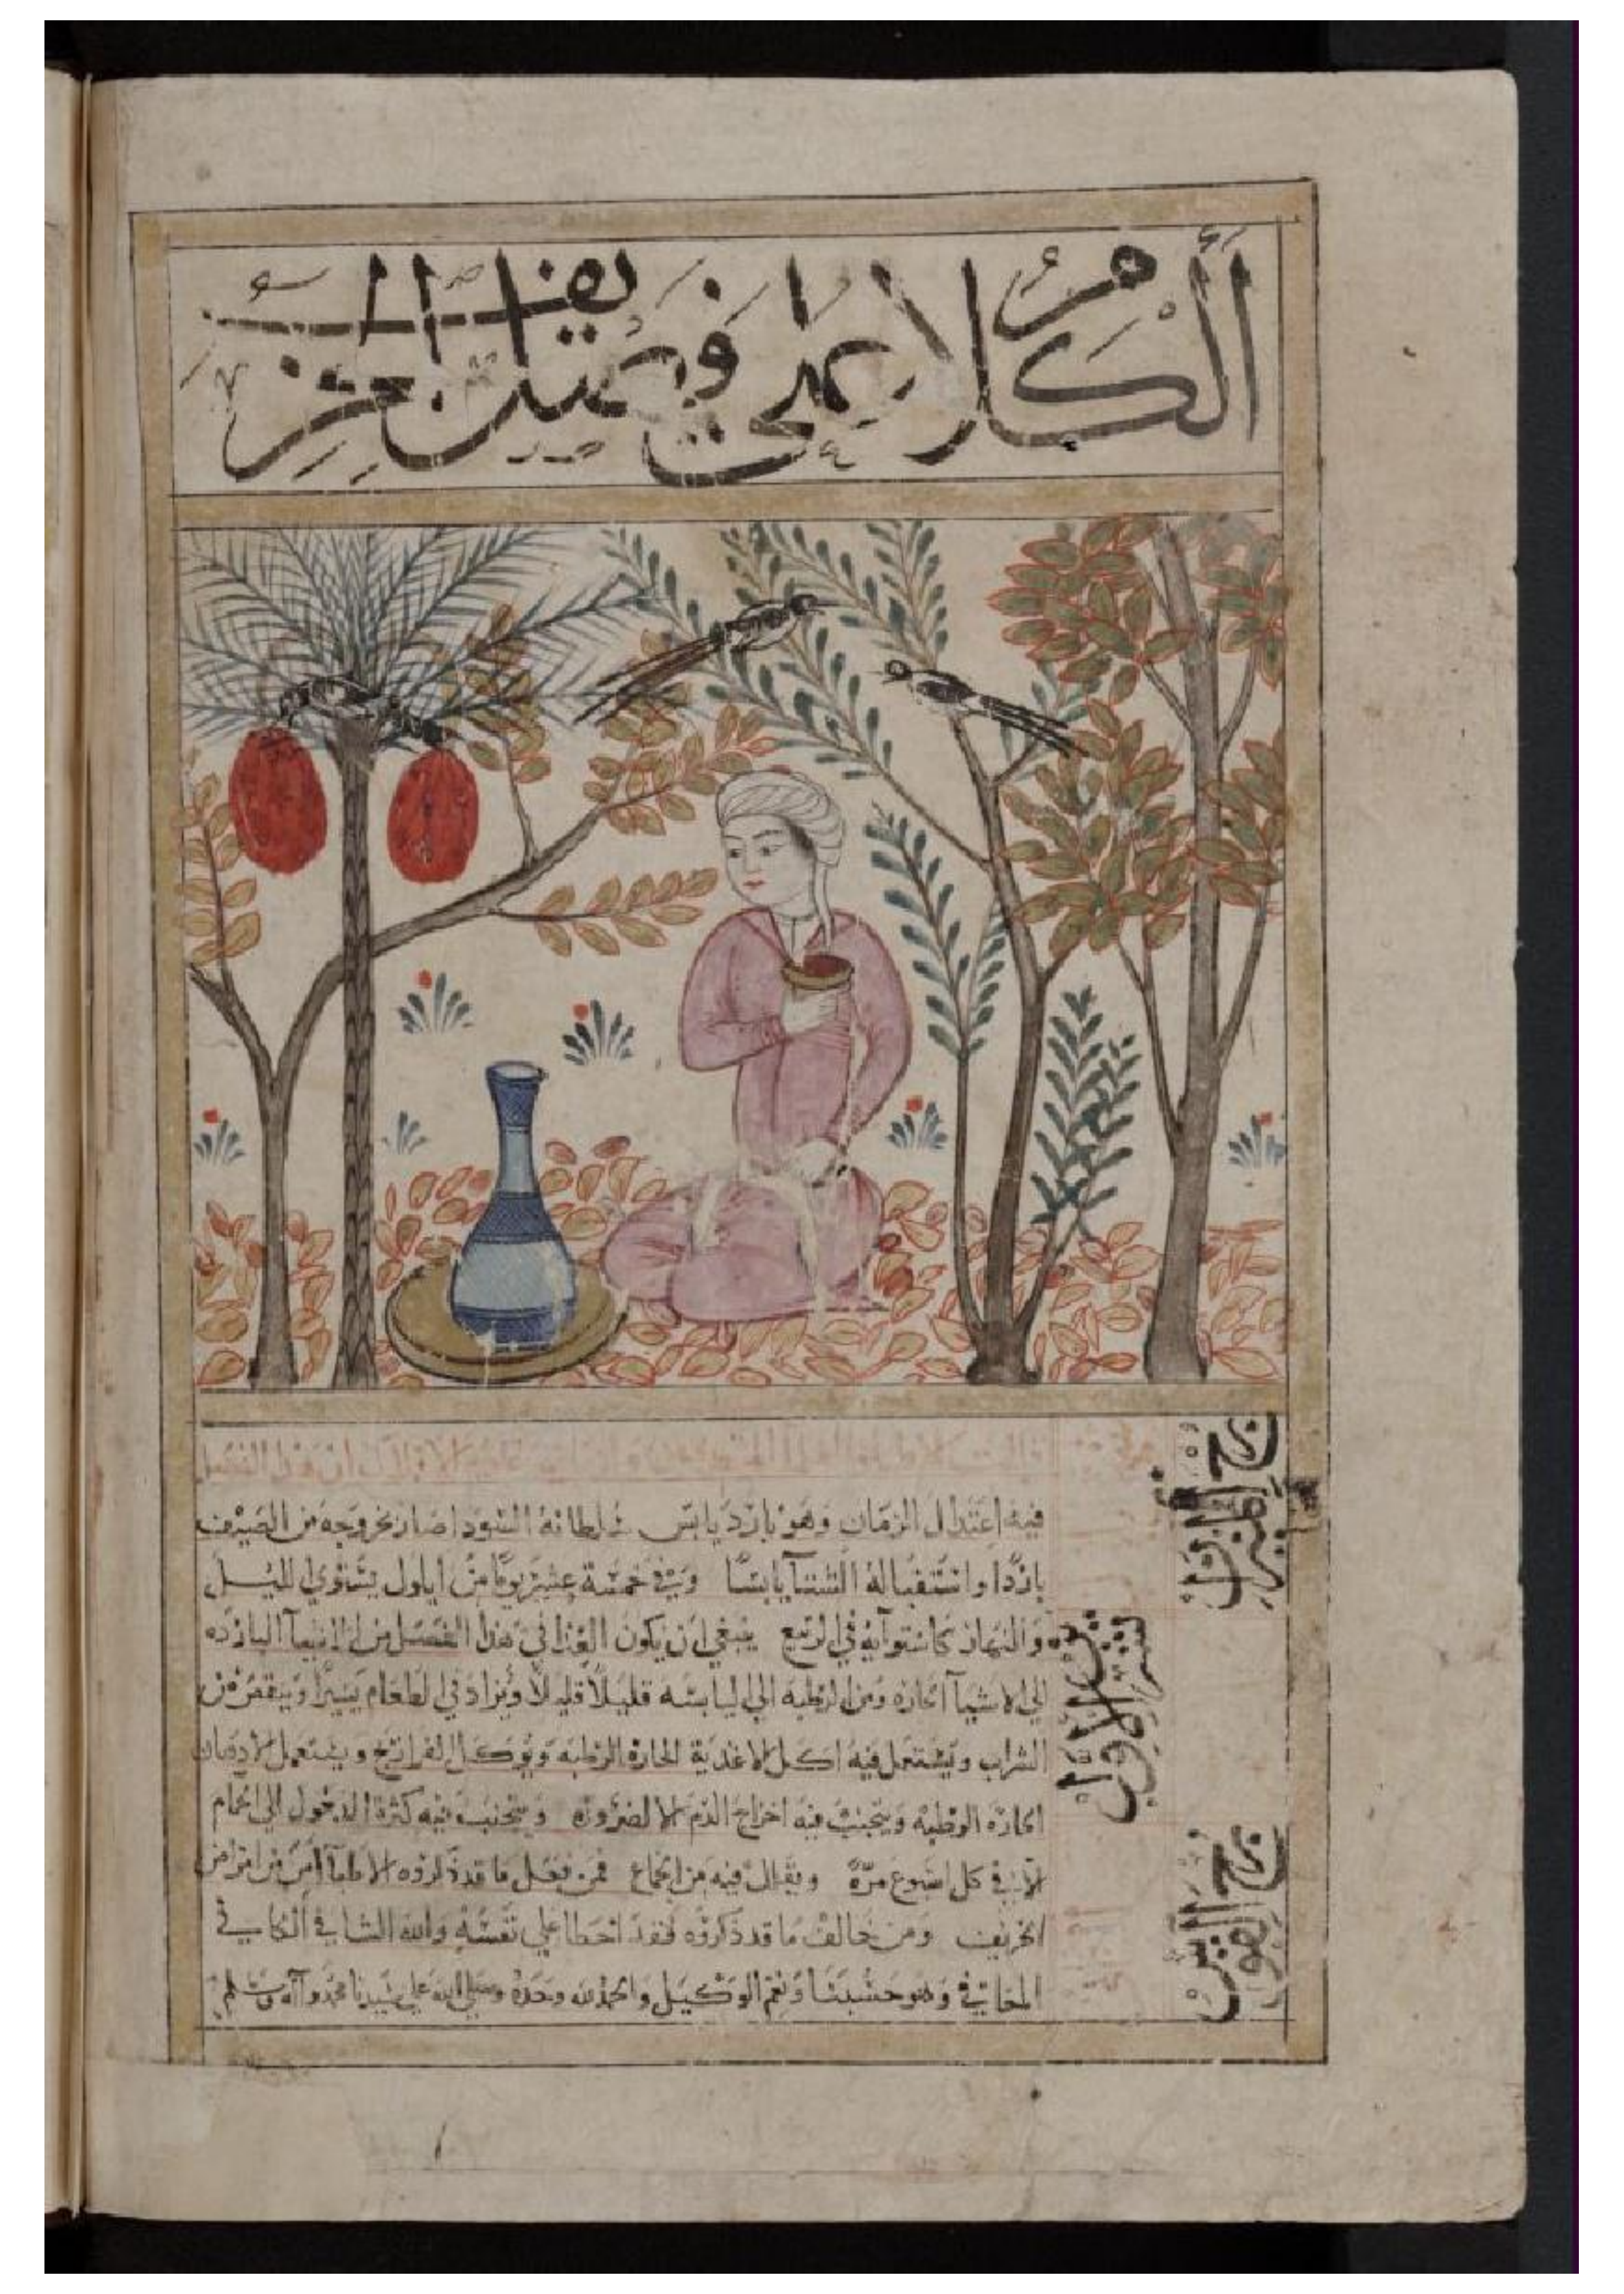 الكلام على فصل الخريف
فيه اعتدال الزمان وهو بارد يابس سلطانه السودا صار بخروجه من الصيف
باردا واستقباله الشتا يابسا وفي خمسة عشر يوما من ايلول يستوي الليل
والنهار كاستوايه في الربيع ينبغي ان يكون الغذا في هذا الفصل من الاشيآ البارده
الي الاشيآ الحاره ومن الرطبه الي اليابسه قليلا قليلا ويزاد في الطعام يسيرا وينقص من
الشراب ويستعمل فيه اكل الاغدية الحارة الرطبه ويوكل الفراريج ويستعمل الادهان
الحارة الرطبه ويتجنب فيه اخراج الدم الا لضروره ويتجنب فيه كثرة الدخول الي الحمام
الا في كل اسبوع مرة ويقال فيه من الجماع فمن فعل ما قد ذكروه الاطبآ امن من امراض
الخريف ومن خالف ما قد ذكروه فقد اخطا علي نفسه والله الشافي الكافي
المعافي وهو حسبنا ونعم الوكيل والحمد لله وحده وصلي الله علي سيدنا محمد وآله وسلم
برج الميزان
تشرين الاول
برج القوس